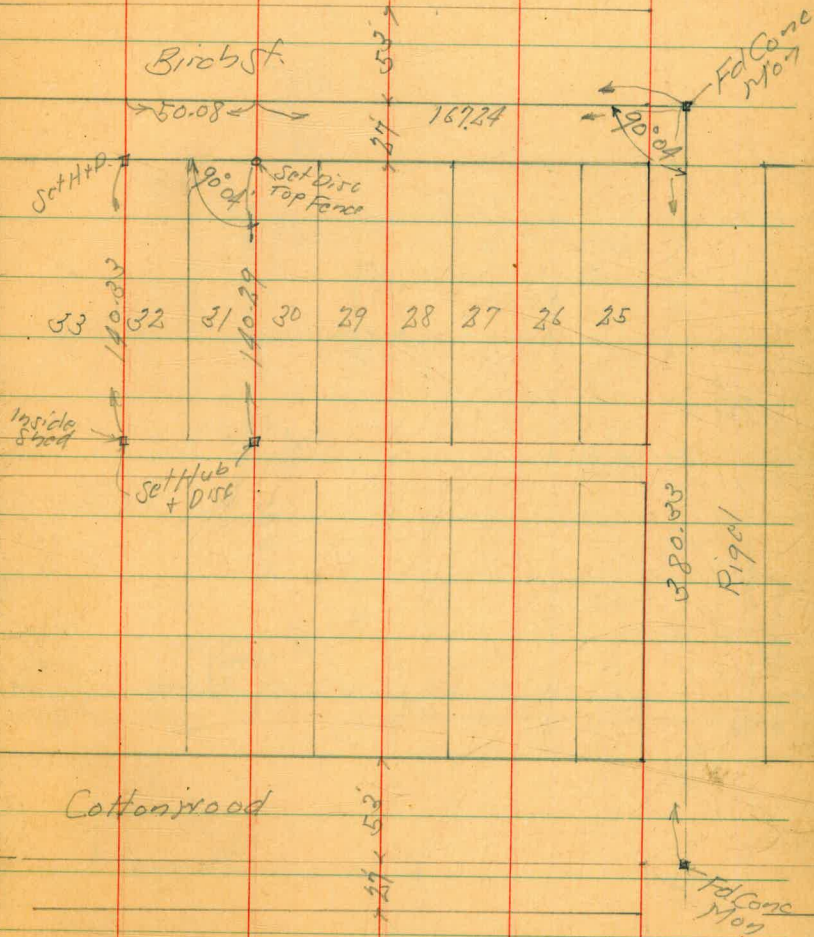 Birch St.
53'
Fd Conc
Mon
50.08
27'
167.24
90°04'
Set H+D.
90°04'
Set Disc
Top Fence
140.33
140.29
33 32 31 30 29 28 27 26 25
Inside
Shed
Set Hub
+ Disc
380.33
Rigel
Cottonwood
53'
27'
Fd Conc
Mon